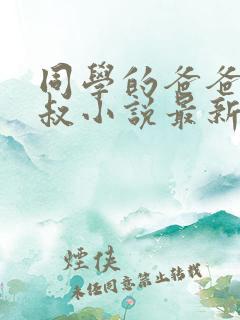 同學的爸爸
叔小說最新
煙俠
未經同意禁止轉載